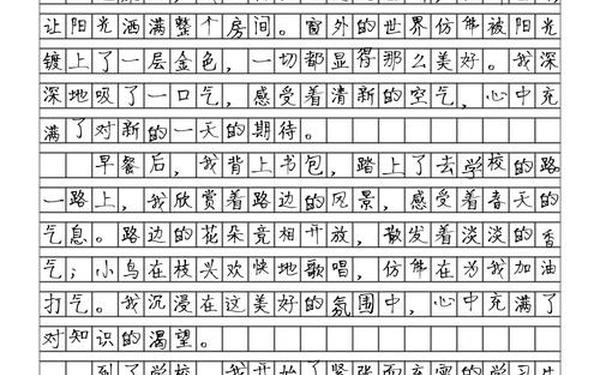 让阳光洒满整个房间。窗外的世界仿佛被阳光
镀上了一层金色，一切都显得那么美好。我深
深地吸了一口气，感受着清新的空气，心中充
满了对新的一天的期待。
早餐后，我背上书包，踏上了去学校的路。
一路上，我欣赏着路边的风景，感受着春天的
气息。路边的花朵竞相开放，散发着淡淡的香
气；小鸟在枝头欢快地歌唱，仿佛在为我加油
打气。我沉浸在这美好的氛围中，心中充满了
对知识的渴望。
到了学校，我开始了紧张而充实的学习生